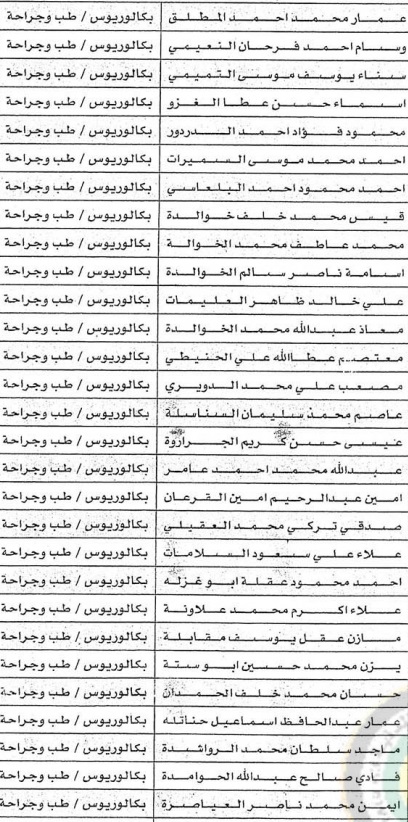 عمار محمد احمد المطلق بكالوريوس / طب وجراحة
وسام احمد فرحان النعيمي بكالوريوس / طب وجراحة
سناء يوسف موسى التميمي بكالوريوس / طب وجراحة
اسماء حسن عطا الغزو بكالوريوس / طب وجراحة
محمود فؤاد احمد الدردور بكالوريوس / طب وجراحة
احمد محمد موسى السميرات بكالوريوس / طب وجراحة
احمد محمود احمد البلعاسي بكالوريوس / طب وجراحة
قيس محمد خلف خوالدة بكالوريوس / طب وجراحة
محمد عاطف محمد الخوالة بكالوريوس / طب وجراحة
اسامة ناصر سالم الخوالدة بكالوريوس / طب وجراحة
علي خالد ظاهر العليمات بكالوريوس / طب وجراحة
معاذ عبدالله محمد الخوالدة بكالوريوس / طب وجراحة
معتصم عطاالله علي الحنيطي بكالوريوس / طب وجراحة
مصعب علي محمد الدويري بكالوريوس / طب وجراحة
عاصم محمد سليمان السناسلة بكالوريوس / طب وجراحة
عيسى حسن كريم الجراروة بكالوريوس / طب وجراحة
عبدالله محمد احمد عامر بكالوريوس / طب وجراحة
امين عبدالرحيم امين القرعان بكالوريوس / طب وجراحة
صدقي تركي محمد العقيلي بكالوريوس / طب وجراحة
علاء علي سعود السلامات بكالوريوس / طب وجراحة
احمد محمود عقلة ابو غزله بكالوريوس / طب وجراحة
علاء اكرم محمد علاونة بكالوريوس / طب وجراحة
مازن عقل يوسف مقابلة بكالوريوس / طب وجراحة
يزن محمد حسين ابو ستة بكالوريوس / طب وجراحة
حسان محمد خلف الحمدان بكالوريوس / طب وجراحة
عمار عبدالحافظ اسماعيل حناتله بكالوريوس / طب وجراحة
ماجد سلطان محمد الرواشدة بكالوريوس / طب وجراحة
فادي صالح عبدالله الحوامدة بكالوريوس / طب وجراحة
ايمن محمد ناصر العياصرة بكالوريوس / طب وجراحة